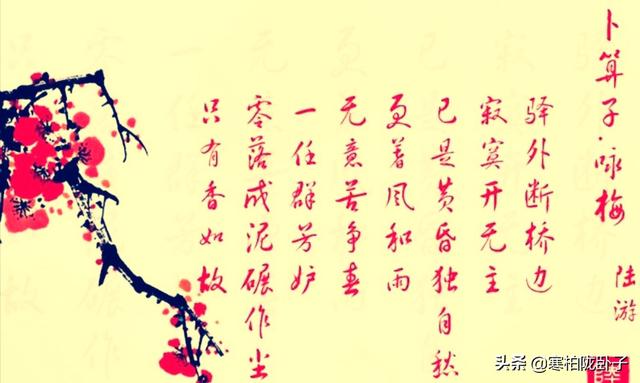 卜算子·咏梅
陆游
驿外断桥边
寂寞开无主
已是黄昏独自愁
更著风和雨
无意苦争春
一任群芳妒
零落成泥碾作尘
只有香如故
头条 @寒柏陇卧子